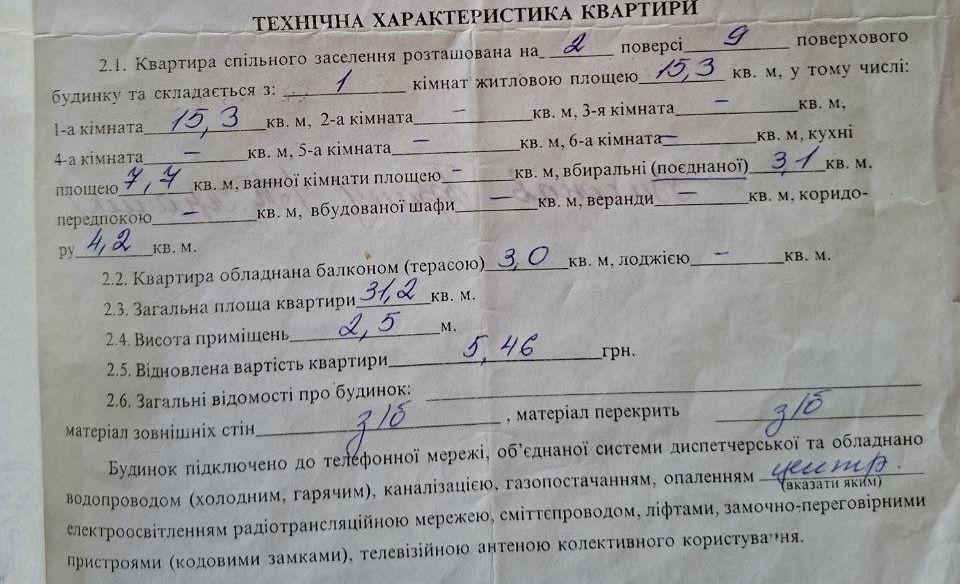 ТЕХНІЧНА ХАРАКТЕРИСТИКА КВАРТИРИ
2.1. Квартира спільного заселення розташована на 2 поверсі 9 поверхового
будинку та складається з: 1 кімнат житловою площею 15,3 кв. м, у тому числі:
1-а кімната 15,3 кв. м, 2-а кімната – кв. м, 3-я кімната – кв. м,
4-а кімната – кв. м, 5-а кімната – кв. м, 6-а кімната – кв. м, кухні
площею 7,7 кв. м, ванної кімнати площею – кв. м, вбиральні (поєднаної) 3,1 кв. м,
передпокою – кв. м, вбудованої шафи – кв. м, веранди – кв. м, коридо-
ру 4,2 кв. м.
2.2. Квартира обладнана балконом (терасою) 3,0 кв. м, лоджією – кв. м.
2.3. Загальна площа квартири 31,2 кв. м.
2.4. Висота приміщень 2,5 м.
2.5. Відновлена вартість квартири 5,46 грн.
2.6. Загальні відомості про будинок:
матеріал зовнішніх стін з/б , матеріал перекрить з/б
Будинок підключено до телефонної мережі, об’єднаної системи диспетчерської та обладнано
водопроводом (холодним, гарячим), каналізацією, газопостачанням, опаленням центр.
(вказати яким)
електроосвітленням радіотрансляційною мережею, сміттєпроводом, ліфтами, замочно-переговірними
пристроями (кодовими замками), телевізійною антеною колективного користування.